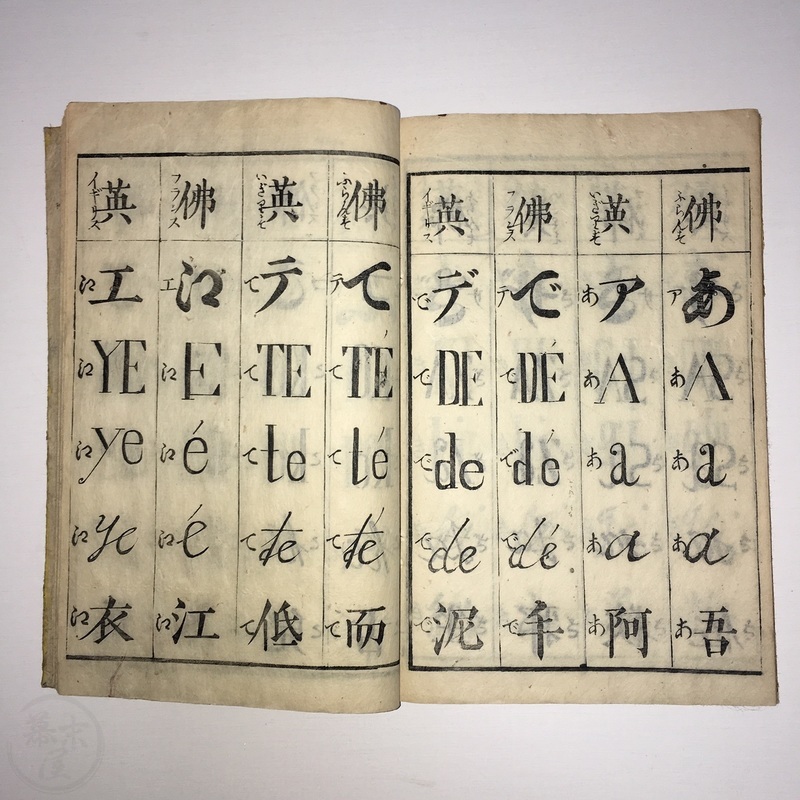 佛 ふらんす
あ ア
A あ
a あ
a あ
吾 あ
英
ア あ
A あ
a あ
a あ
阿 あ
佛 フランス
で デ
DÉ で
dé で
dé で
手 で
英 イギリス
デ で
DE で
de で
de で
泥 で
佛 ふらんす
て テ
TÉ て
té て
té て
而 て
英
テ て
TE て
te て
te て
低 て
佛 フランス
江 エ
E 江
é 江
é 江
江 江
英 イギリス
エ 江
YE 江
ye 江
ye 江
衣 江
幕末屋